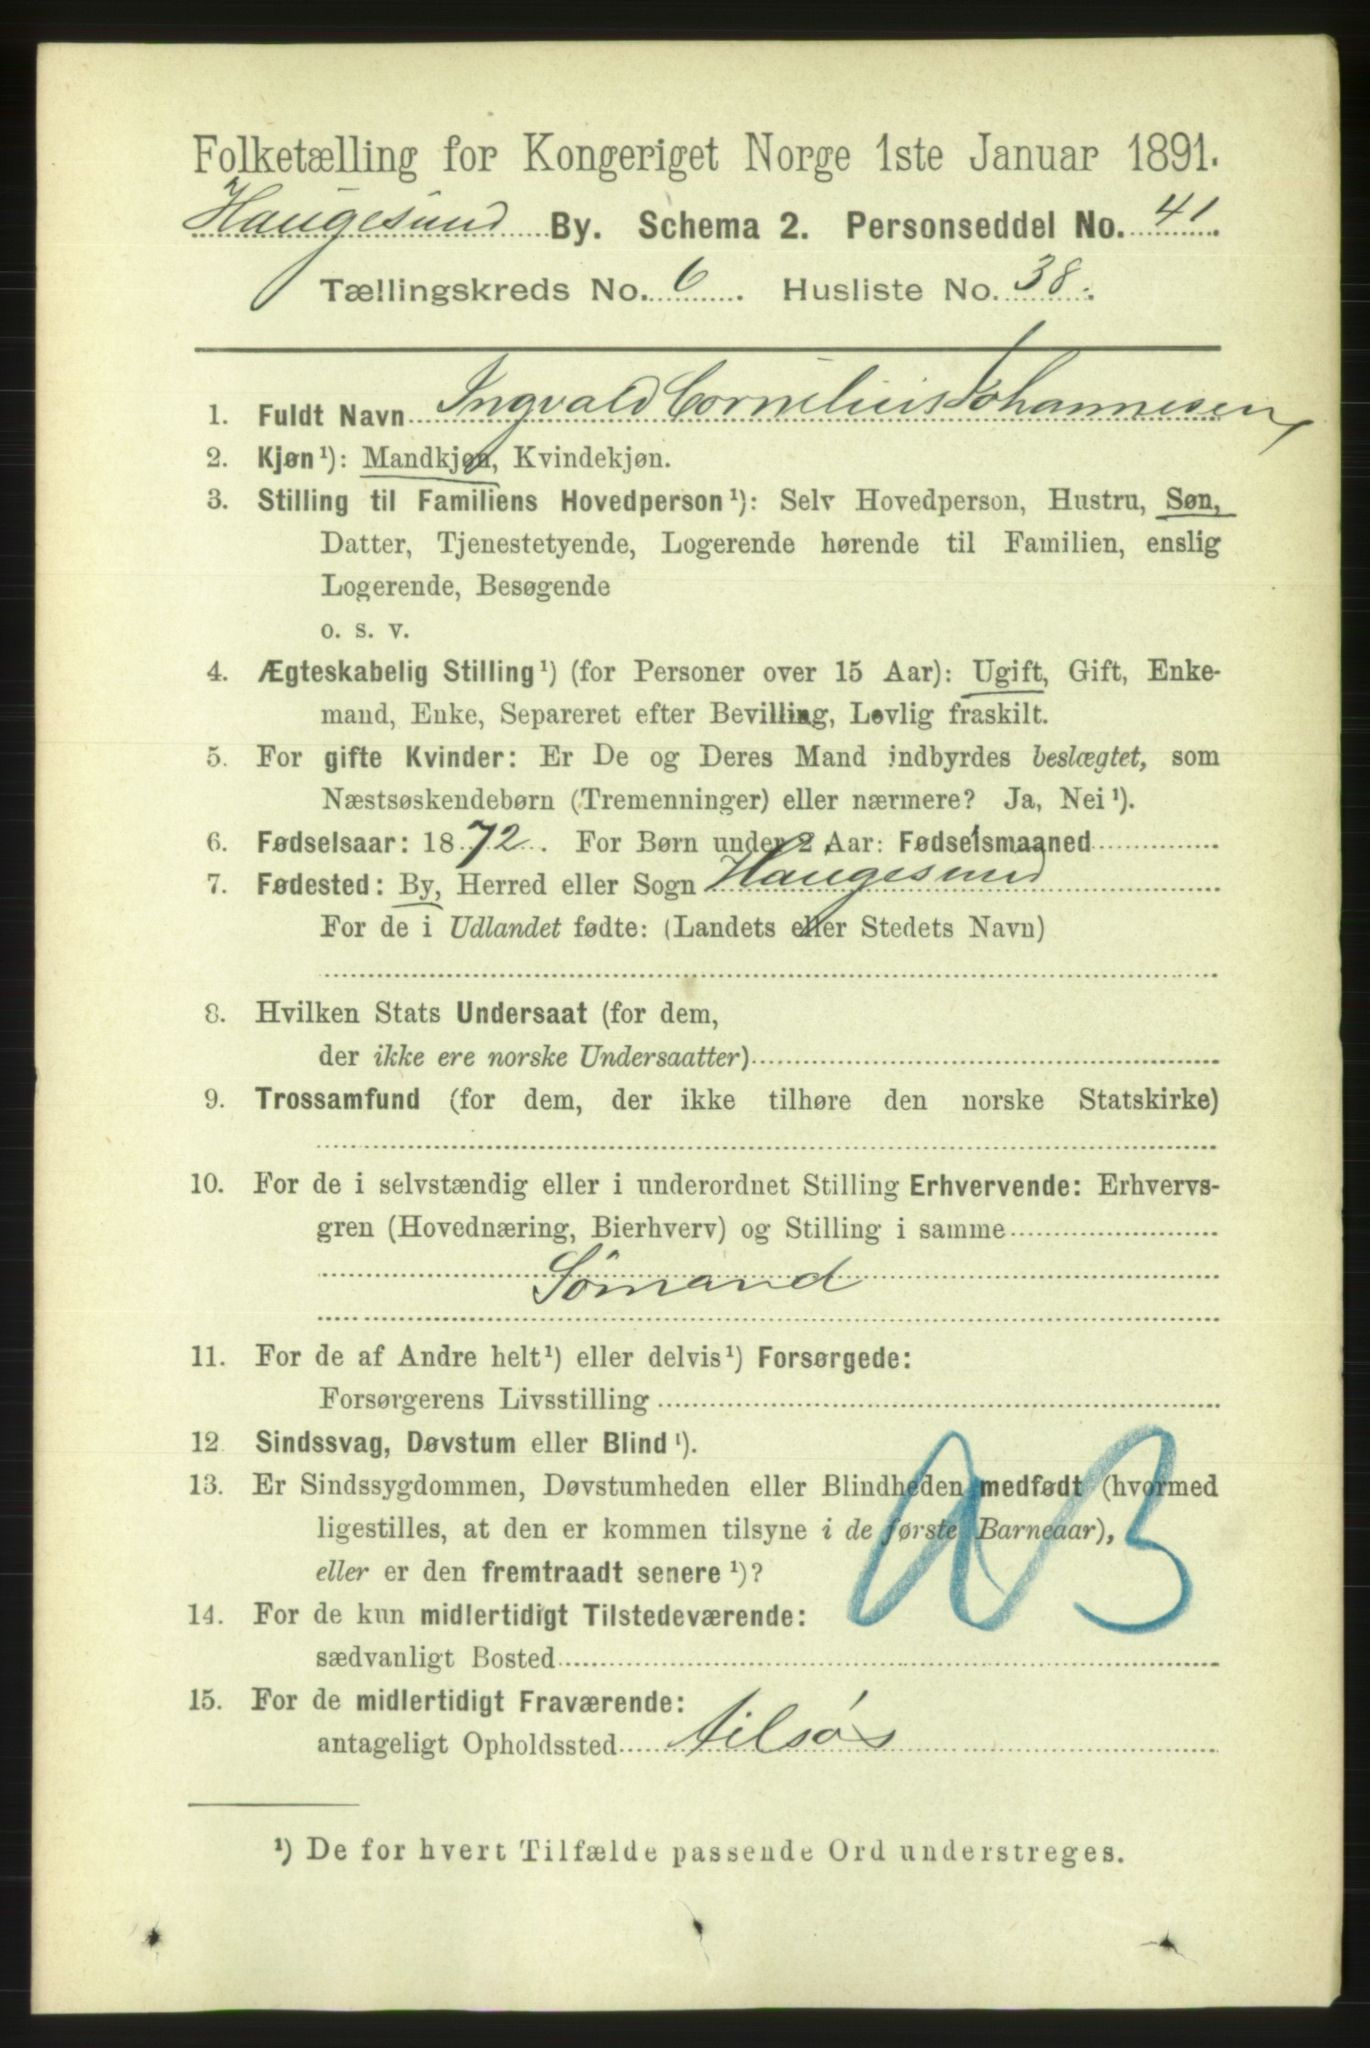 Folketælling for Kongeriget Norge 1ste Januar 1891.
Haugesund By. Schema 2. Personseddel No. 41.
Tællingskreds No. 6. Husliste No. 38.
1. Fuldt Navn Ingvald Cornelius Johannesen
2. Kjøn¹): Mandkjøn, Kvindekjøn.
3. Stilling til Familiens Hovedperson¹): Selv Hovedperson, Hustru, Søn,
Datter, Tjenestetyende, Logerende hørende til Familien, enslig
Logerende, Besøgende
o. s. v.
4. Ægteskabelig Stilling¹) (for Personer over 15 Aar): Ugift, Gift, Enke-
mand, Enke, Separeret efter Bevilling, Lovlig fraskilt.
5. For gifte Kvinder: Er De og Deres Mand indbyrdes beslægtet, som
Næstsøskendebørn (Tremenninger) eller nærmere? Ja, Nei¹).
6. Fødselsaar: 1872. For Børn under 2 Aar: Fødselsmaaned
7. Fødested: By, Herred eller Sogn Haugesund
For de i Udlandet fødte: (Landets eller Stedets Navn)
8. Hvilken Stats Undersaat (for dem,
der ikke ere norske Undersaatter)
9. Trossamfund (for dem, der ikke tilhøre den norske Statskirke)
10. For de i selvstændig eller i underordnet Stilling Erhvervende: Erhvervs-
gren (Hovednæring, Bierhverv) og Stilling i samme
Sømand
11. For de af Andre helt¹) eller delvis¹) Forsørgede:
Forsørgerens Livsstilling
12 Sindssvag, Døvstum eller Blind¹).
13. Er Sindssygdommen, Døvstumheden eller Blindheden medfødt (hvormed
ligestilles, at den er kommen tilsyne i de første Barneaar),
eller er den fremtraadt senere¹)?
14. For de kun midlertidigt Tilstedeværende:
sædvanligt Bosted
15. For de midlertidigt Fraværende:
antageligt Opholdssted tilsøs
¹) De for hvert Tilfælde passende Ord understreges.